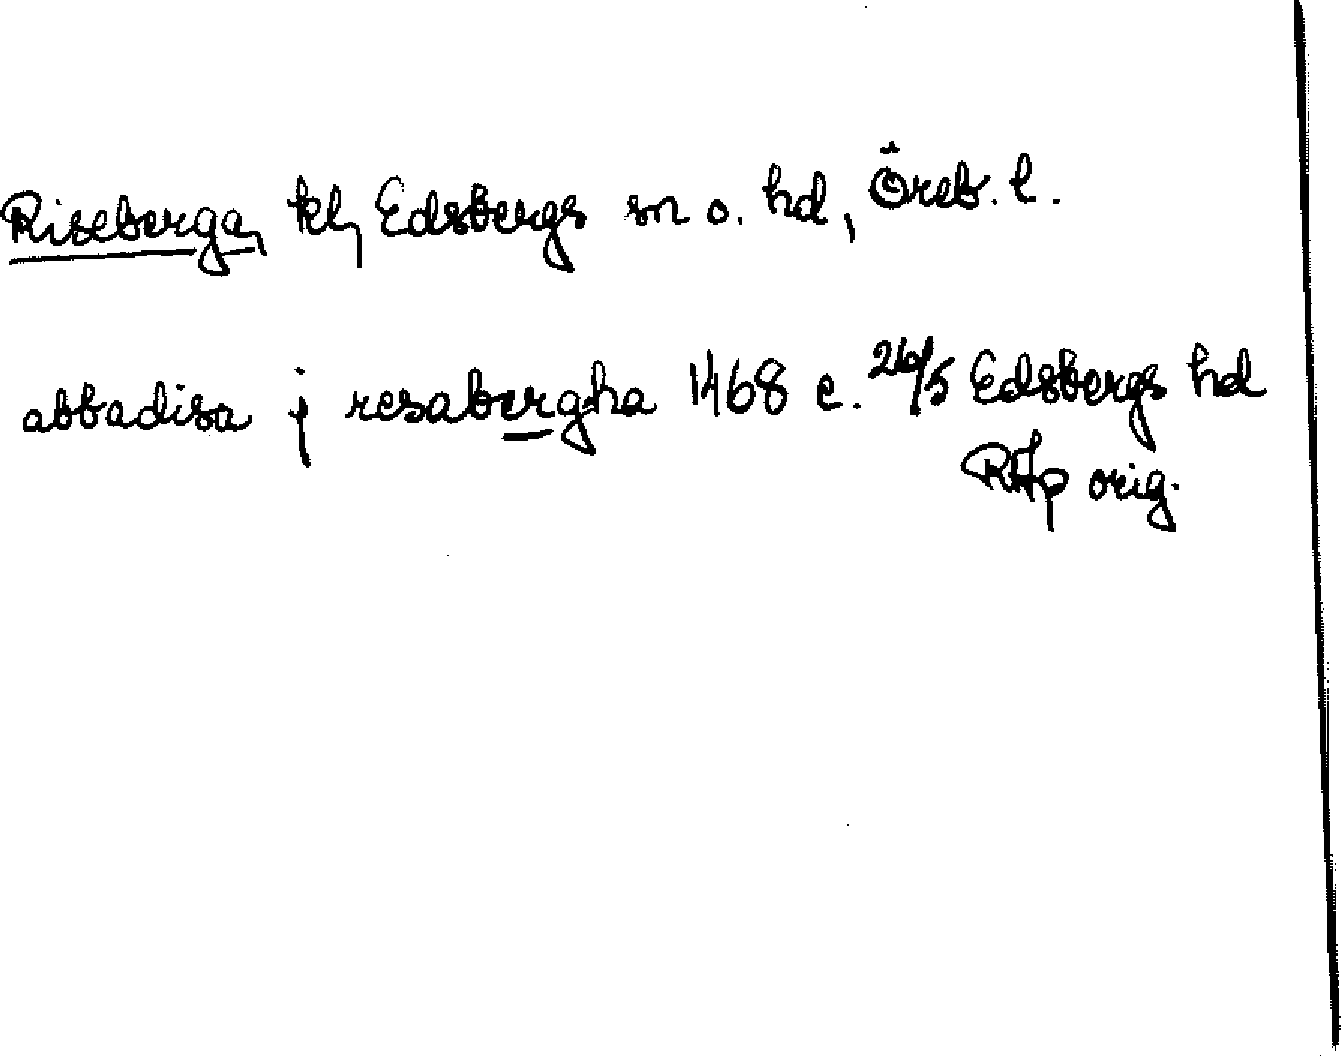 Riseberga, kl, Edsbergs sn o. hd, Öreb. l.
abbadisa j resabergha 1468 e. 26/5 Edsbergs hd
RAp orig.